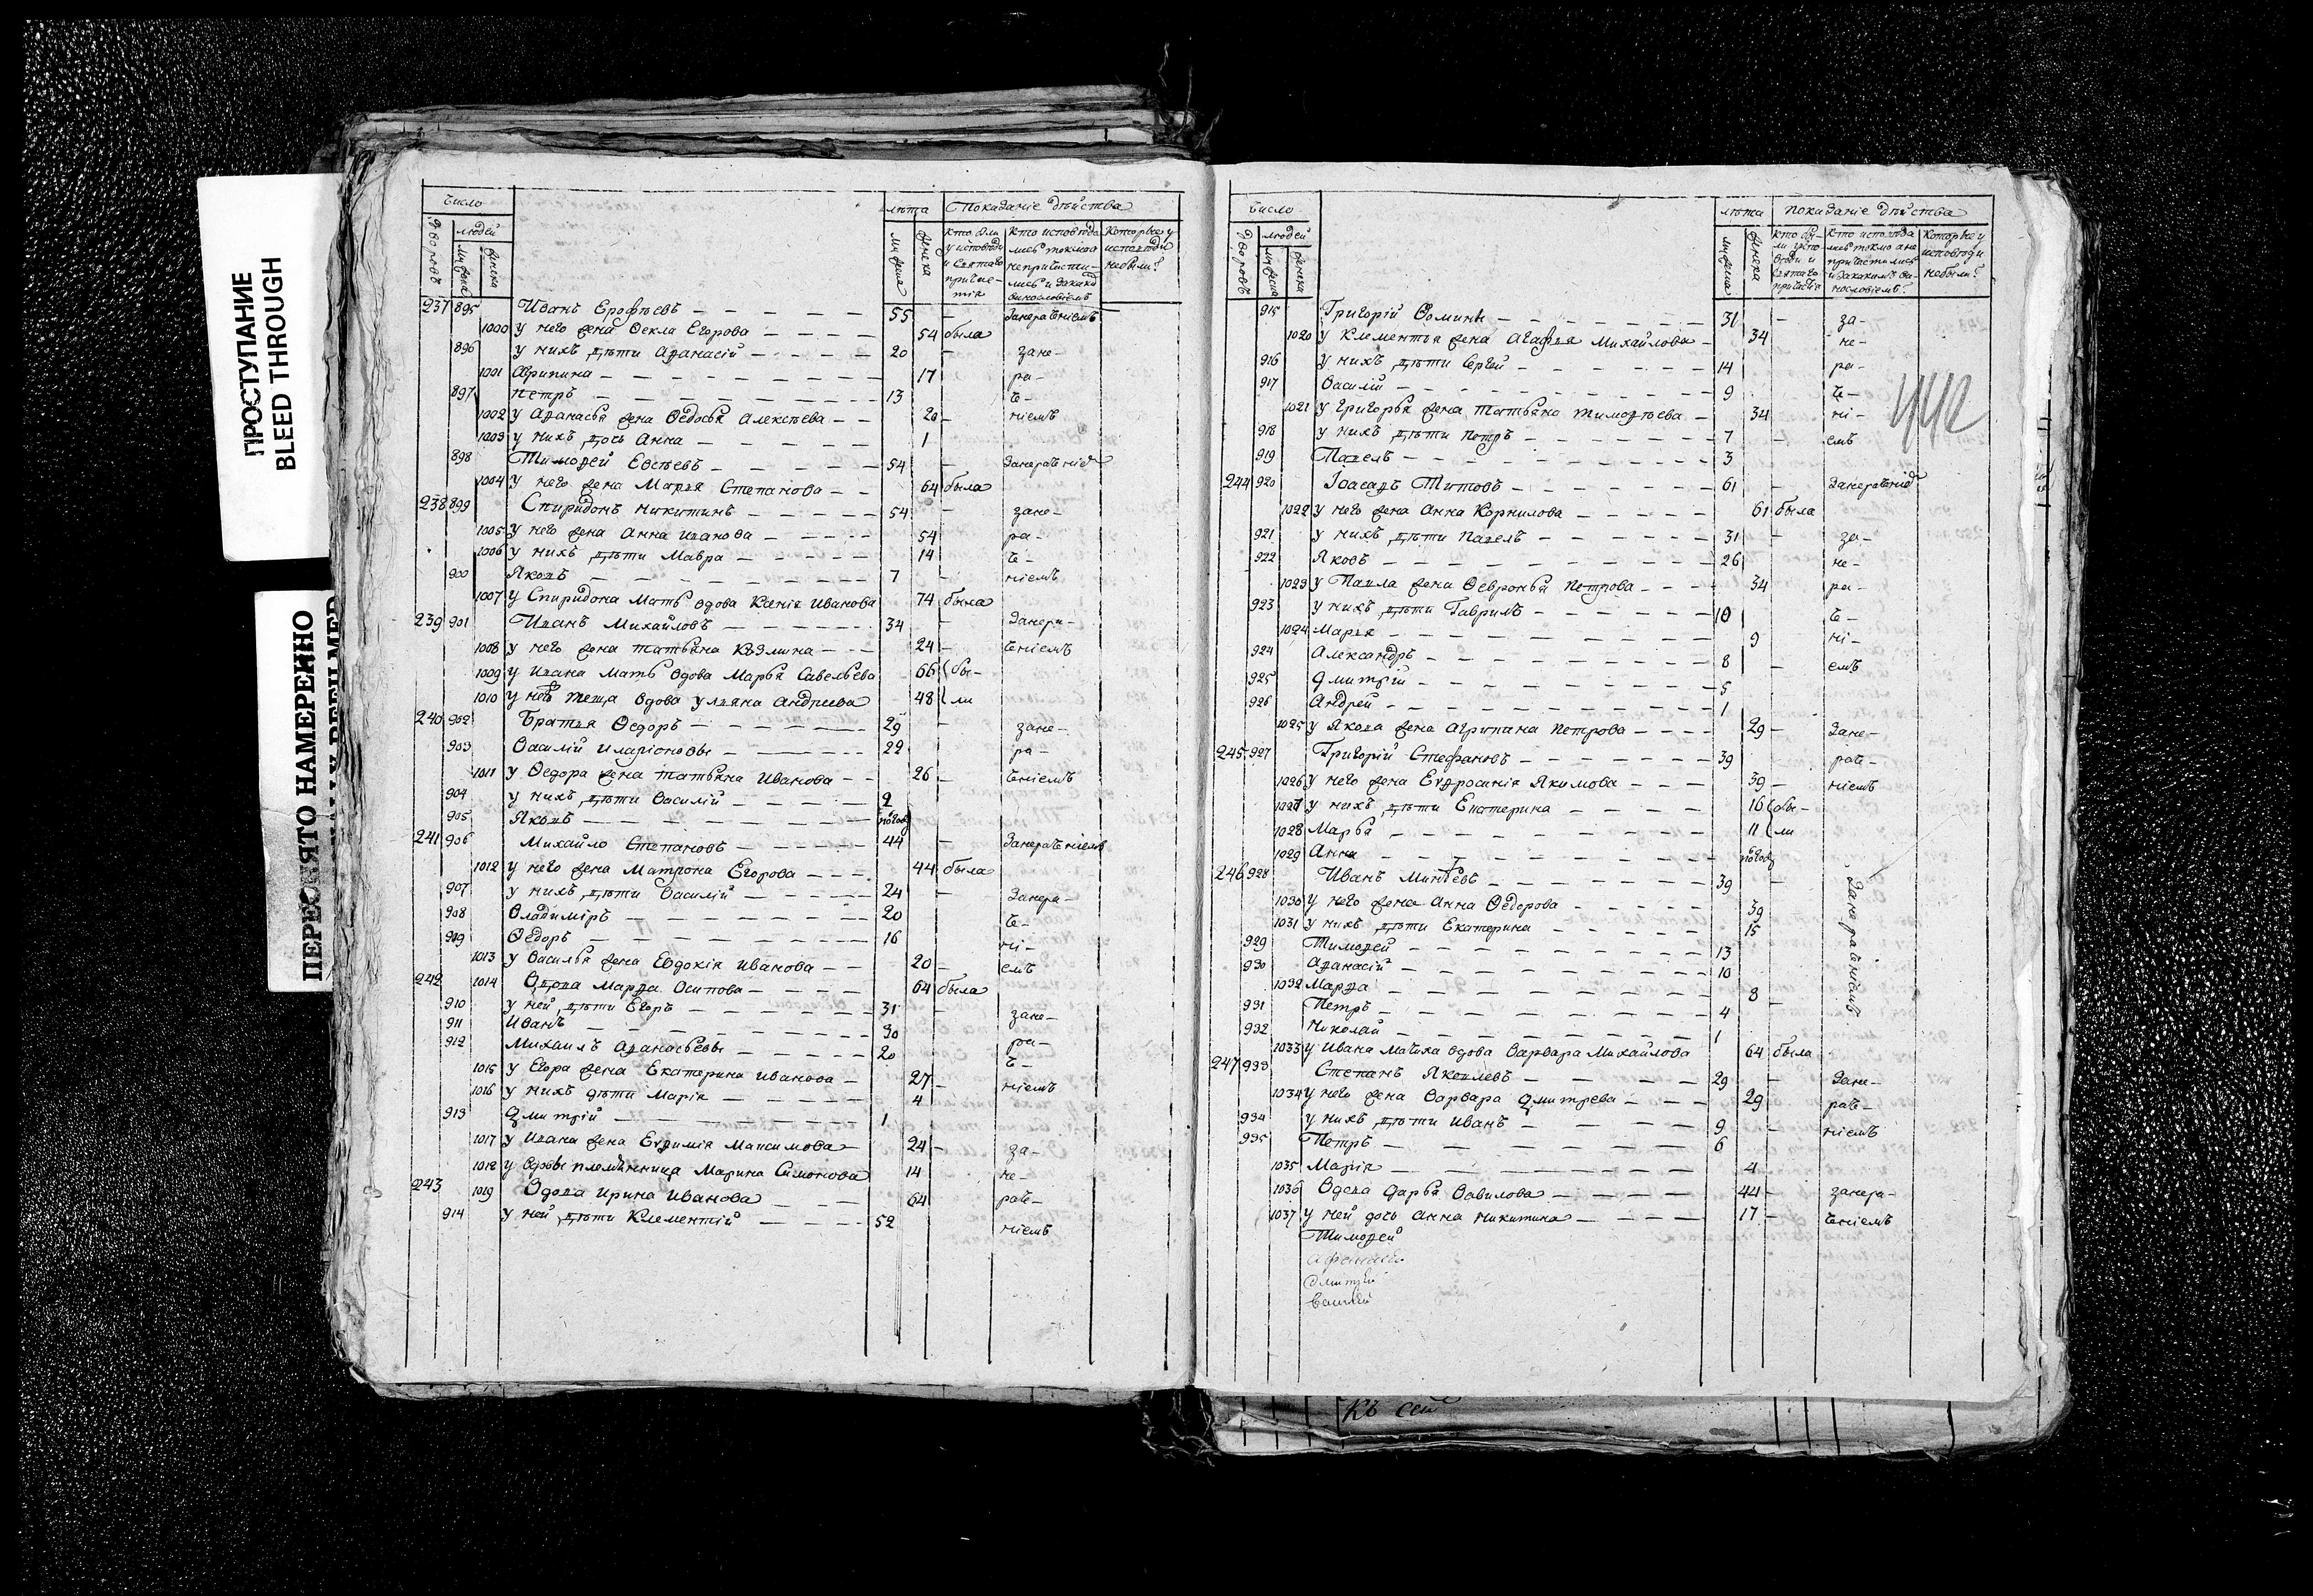 ПРОСТУПАНИЕ
BLEED THROUGH
ПЕРЕСНЯТО НАМЕРЕННО
число лѣта Показаніе дѣйства
дворовъ людей мужеска женска мужеска женска
237 895 Иванъ Ерофѣевъ 55 - Занераченіемъ
1000 у него жена Ѳекла Егорова 54 была
896 у нихъ дѣти Аѳанасій 20 - зане-
1001 Агрипина 17 ра-
897 Петръ 13 че-
1002 у Аѳанасья жена Ѳедосья Алексѣева 20 - ніемъ
1003 у нихъ дочь Анна 1
898 Тимоѳей Евсѣевъ 54 - Занераченіе
1004 у него жена Марья Степанова 64 была
238 899 Спиридонъ Никитинъ 54 - зане-
1005 у него жена Анна Иванова 54 ра-
1006 у нихъ дѣти Мавра 14 че-
900 Яковъ 7 - ніемъ
1007 у Спиридона Мать вдова Ксенія Иванова 74 была
239 901 Иванъ Михайловъ 34 - Занера-
1008 у него жена Татьяна Козмина 24 - ченіемъ
1009 у Ивана Мать вдова Марья Савельева 66 бы-
1010 у него теща вдова Ульяна Андреева 48 ли
240 902 Братья Ѳедоръ 29 - зане-
903 Василій Иларіоновы 22 ра-
1011 у Ѳедора жена Татьяна Иванова 26 - ченіемъ
904 у нихъ дѣти Василій 2
905 Яковъ полгода
241 906 Михайло Степановъ 44 - Занераченіемъ
1012 у него жена Матрона Егорова 44 была
907 у нихъ дѣти Василій 24 - Занера-
908 Владиміръ 20 че-
909 Ѳедоръ 16 ні-
1013 у Василья жена Евдокія Иванова 20 - емъ
242 1014 Вдова Марѳа Осипова 64 была
910 у ней дѣти Егоръ 31 - зане-
911 Иванъ 30 ра-
912 Михаилъ Аѳанасьевы 20 че-
1015 у Егора жена Екатерина Иванова 27 - ніемъ
1016 у нихъ дѣти Марія 4
913 Дмитрій 1
1017 у Ивана жена Евѳимія Максимова 24 - за-
1018 у вдовы племянница Марина Симонова 14 не-
243 1019 Вдова Ирина Иванова 64 раче-
914 у ней дѣти Клементій 52 ніемъ
число лѣта показаніе дѣйства
дворовъ людей мужеска женска мужеска женска
915 Григорій Ѳомины 31 - за-
1020 у Клементья жена Агафья Михайлова 34 не-
916 у нихъ дѣти Сергей 14 ра-
917 Василій 9 че-
1021 у Григорья жена Татьяна Тимоѳеева 34 ні-
442
918 у нихъ дѣти Петръ 7 - емъ
919 Павелъ 3
244 920 Іоасаѳъ Титовъ 61 - Занераченіе
1022 у него жена Анна Корнилова 61 была
921 у нихъ дѣти Павелъ 31 - за-
922 Яковъ 26 не-
1023 у Павла жена Ѳевронья Петрова 34 ра-
923 у нихъ дѣти Гаврилъ 10 че-
1024 Марья 9 ні-
924 Александръ 8 - емъ
925 Дмитрій 5
926 Андрей 1
1025 у Якова жена Агрипина Петрова 29 - Зане-
245 927 Григорій Стефановъ 39 раче-
1026 у него жена Евфросинія Якимова 39 - ніемъ
1027 у нихъ дѣти Екатерина 16 бы-
1028 Марья 11 ли
1029 Анна полгода
246 928 Иванъ Минѣевъ 39 - Занераченіемъ
1030 у него жена Анна Ѳедорова 39
1031 у нихъ дѣти Екатерина 15
929 Тимоѳей 13
930 Аѳанасій 10
1032 Марѳа 8
931 Петръ 4
932 Николай 1
1033 у Ивана Мачиха вдова Варвара Михайлова 64 была
247 933 Степанъ Яковлевъ 29 - Зане-
1034 у него жена Варвара Дмитрева 29 раче-
934 у нихъ дѣти Иванъ 9 - ніемъ
935 Петръ 6
1035 Марія 4
1036 Вдова Дарья Вавилова 44 - занера-
1037 у ней дочь Анна Никитина 17 - ченіемъ
Тимоѳей
Афанасей
Дмитрей
Василей
Къ сей